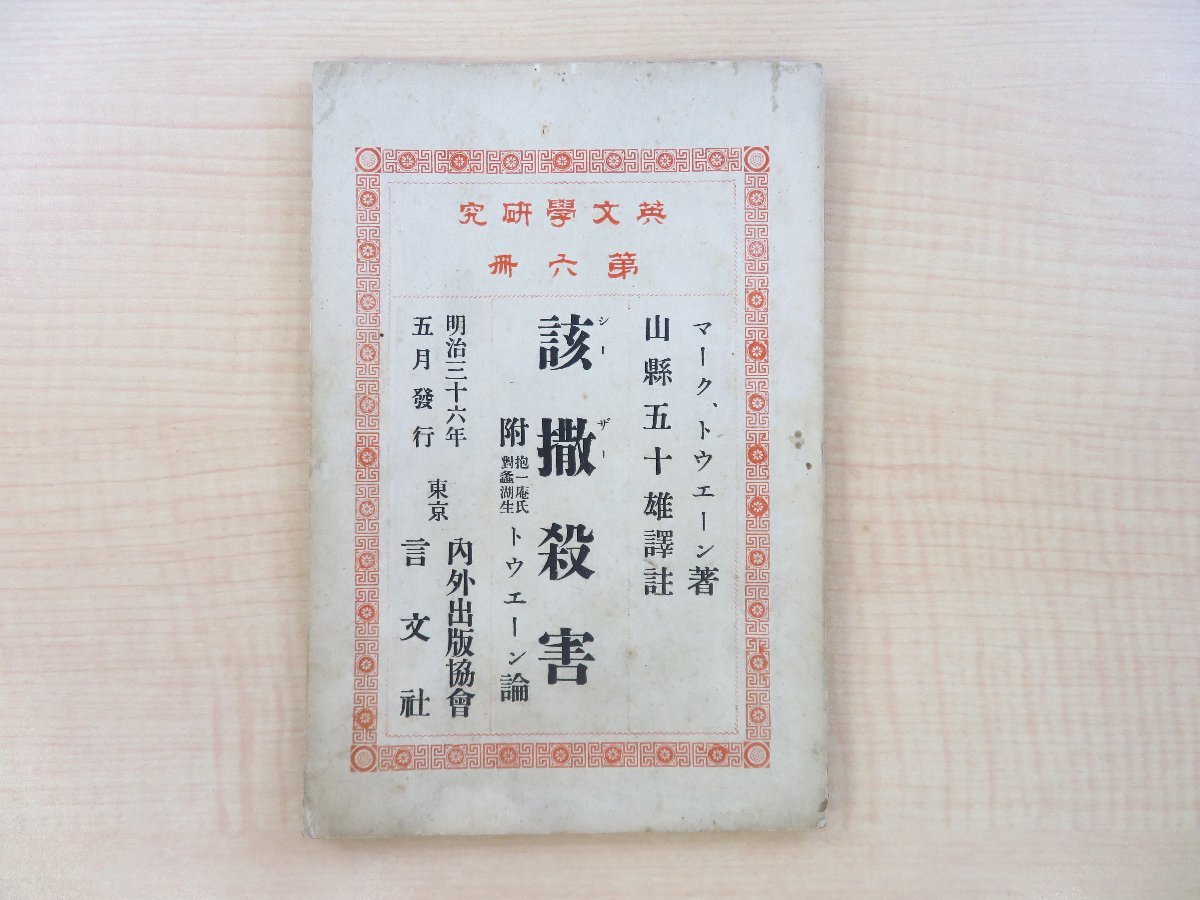 英文學研究
第六冊
マーク、トウエーン著
山縣五十雄譯註
シーザー
該撒殺害
附 抱一庵氏對蠡湖生 トウエーン論
明治三十六年
五月發行
東京
內外出版協會
言文社